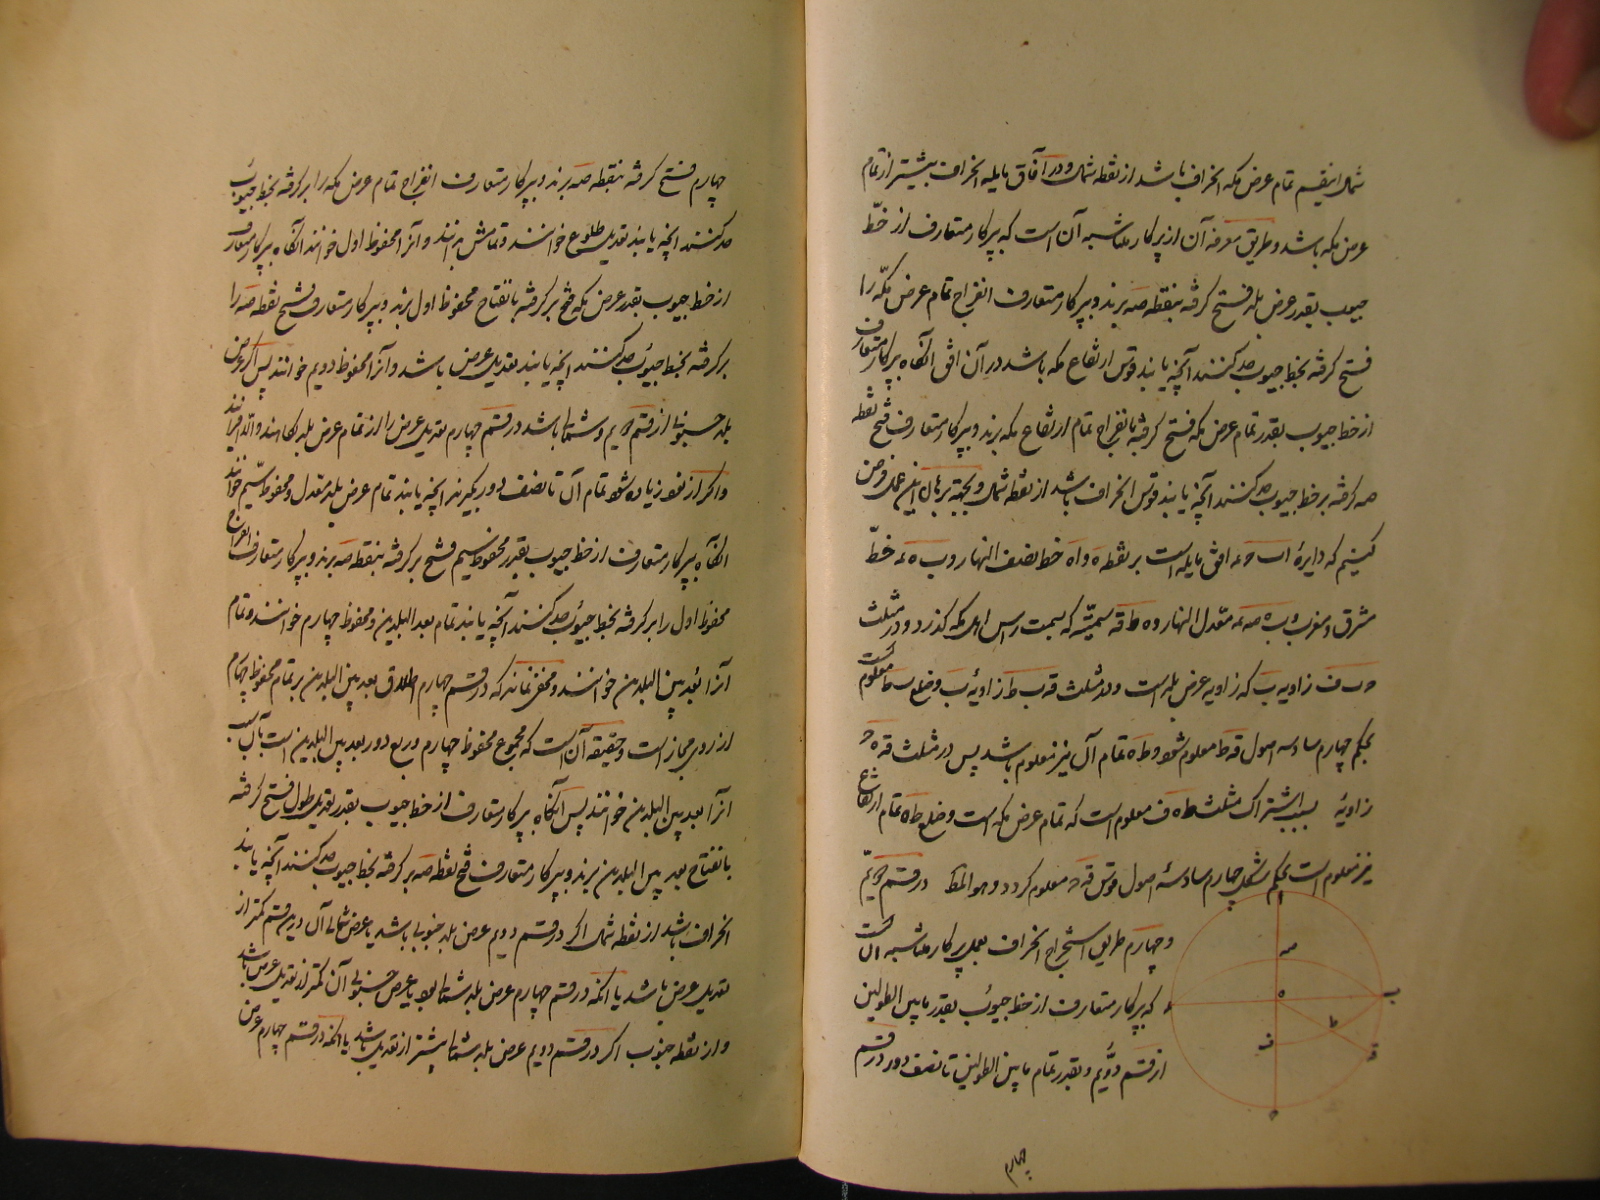 شمال اینقسم تمام عرض مکه انحراف باشد از نقطه شمال و در آفاق مایله انحراف بیشتر از تمام
عرض مکه باشد و طریق معرفه آن از پرکار متناسبه آن است که بپرکار متعارف از خطّ
جیوب بقدر عرض بلد فتح کرفته بنقطه صه برند و بپرکار متعارف انفراج تمام عرض مکّه را
فتح کرفته بخط جیوب صد کنند آنچه یابند قوس ارتفاع مکه باشد در آن افق آنکاه بپرکار متعارف
از خط جیوب بقدر تمام عرض مکه فتح کرفته بانفراج تمام ارتفاع مکه برند و بپرکار متعارف فتح نقطه
صه کرفته بر خط جیوب صد کنند آنچه یابند قوس انحراف باشد از نقطه شمال و بجهة برهان این عمل فرض
کنیم که دایرهٔ اب حد افق مایله است بر نقطه ه و اه ح خط نصف النهار و ب ه د خطّ
مشرق و مغرب و ب صه د معدل النهار و ه ط قه سمتیّه که بسمت راس اهل مکه کذرد و در مثلث
زاویه ب که زاویه عرض بلد است و در مثلث قه ب ط زاویهٔ ب و ضلع ب ط معلوم است
بحکم چهارم سادسه اصول قه ط معلوم شود و ط ه تمام آن نیز معلوم باشد پس در مثلث قه ه ح
زاویهٔ بسبب اشتراک مثلث ط ه ف معلوم است که تمام عرض مکه است و ضلع ط ه تمام ارتفاع
نیز معلوم است بحکم شکل چهارم سادسهٔ اصول قوس قه ح معلوم کردد و هو المط در قسم دویّم
و چهارم طریق استخراج انحراف بعمل پرکار متناسبه آن است
که بپرکار متعارف از خط جیوب بقدر ما بین الطولین
از قسم دوّیم و بقدر تمام ما بین الطولین تا نصف دور در قسم
چهارم
چهارم فتح کرفته بنقطه صه برند و بپرکار متعارف انفراج تمام عرض مکه را بر کرفته بخط جیوب
صد کنند آنچه یابند تعدیل طلوع خوانند و تمامش بدانند و آنرا محفوظ اول خوانند آنکاه بپرکار متعارف
از خط جیوب بقدر عرض مکه فتح بر کرفته بانفتاح محفوظ اول برند و بپرکار متعارف فتح نقطه صه را
بر کرفته بخط جیوب صد کنند آنچه یابند تعدیل عرض باشد و آنرا محفوظ دویم خوانند پس اکر عرض
بلد جنوبی از قسم دویم و شمالی باشد در قسم چهارم تعدیل عرض را از تمام عرض بلد بکاهند و الّا افزایند
و اکر از نود زیاده شود تمام آن تا نصف دور بکیرند آنچه یابند تمام عرض بلد معدل و محفوظ سیّم خوانند
آنکاه بپرکار متعارف از خط جیوب بقدر محفوظ سیم فتح بر کرفته بنقطه صه برند و بپرکار متعارف انفراج
محفوظ اول را بر کرفته بخط جیوب صد کنند آنچه یابند تمام بعد البلدین و محفوظ چهارم خوانند و تمام
آنرا بُعد بین البلدین خوانند و مخفی نماند که در قسم چهارم اطلاق بعد بین البلدین بر تمام محفوظ چهارم
از روی مجاز است و حقیقه آن است که مجموع محفوظ چهارم و ربع دور بعد بین البلدین است
آنرا بعد بین البلدین خوانند پس آنکاه بپرکار متعارف از خط جیوب بقدر تعدیل طول فتح کرفته
بانفتاح بعد بین البلدین برند و بپرکار متعارف فتح نقطه صه بر کرفته بخط جیوب صد کنند آنچه یابند
انحراف باشد از نقطه شمال اکر در قسم دویم عرض بلد جنوبی باشد یا عرض شمالی آن درین قسم کمتر از
تعدیل عرض باشد یا آنکه در قسم چهارم عرض بلد شمالی بود یا عرض جنوبی آن کمتر از تعدیل عرض باشد
و از نقطه جنوب اکر در قسم دویم عرض بلد شمالی بیشتر از تعدیل باشد یا آنکه در قسم چهارم عرض